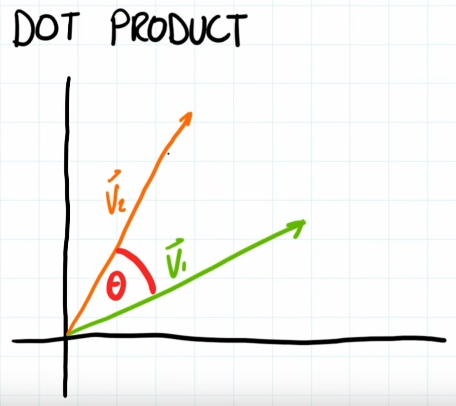 DOT PRODUCT
V⃗₂
V⃗₁
θ